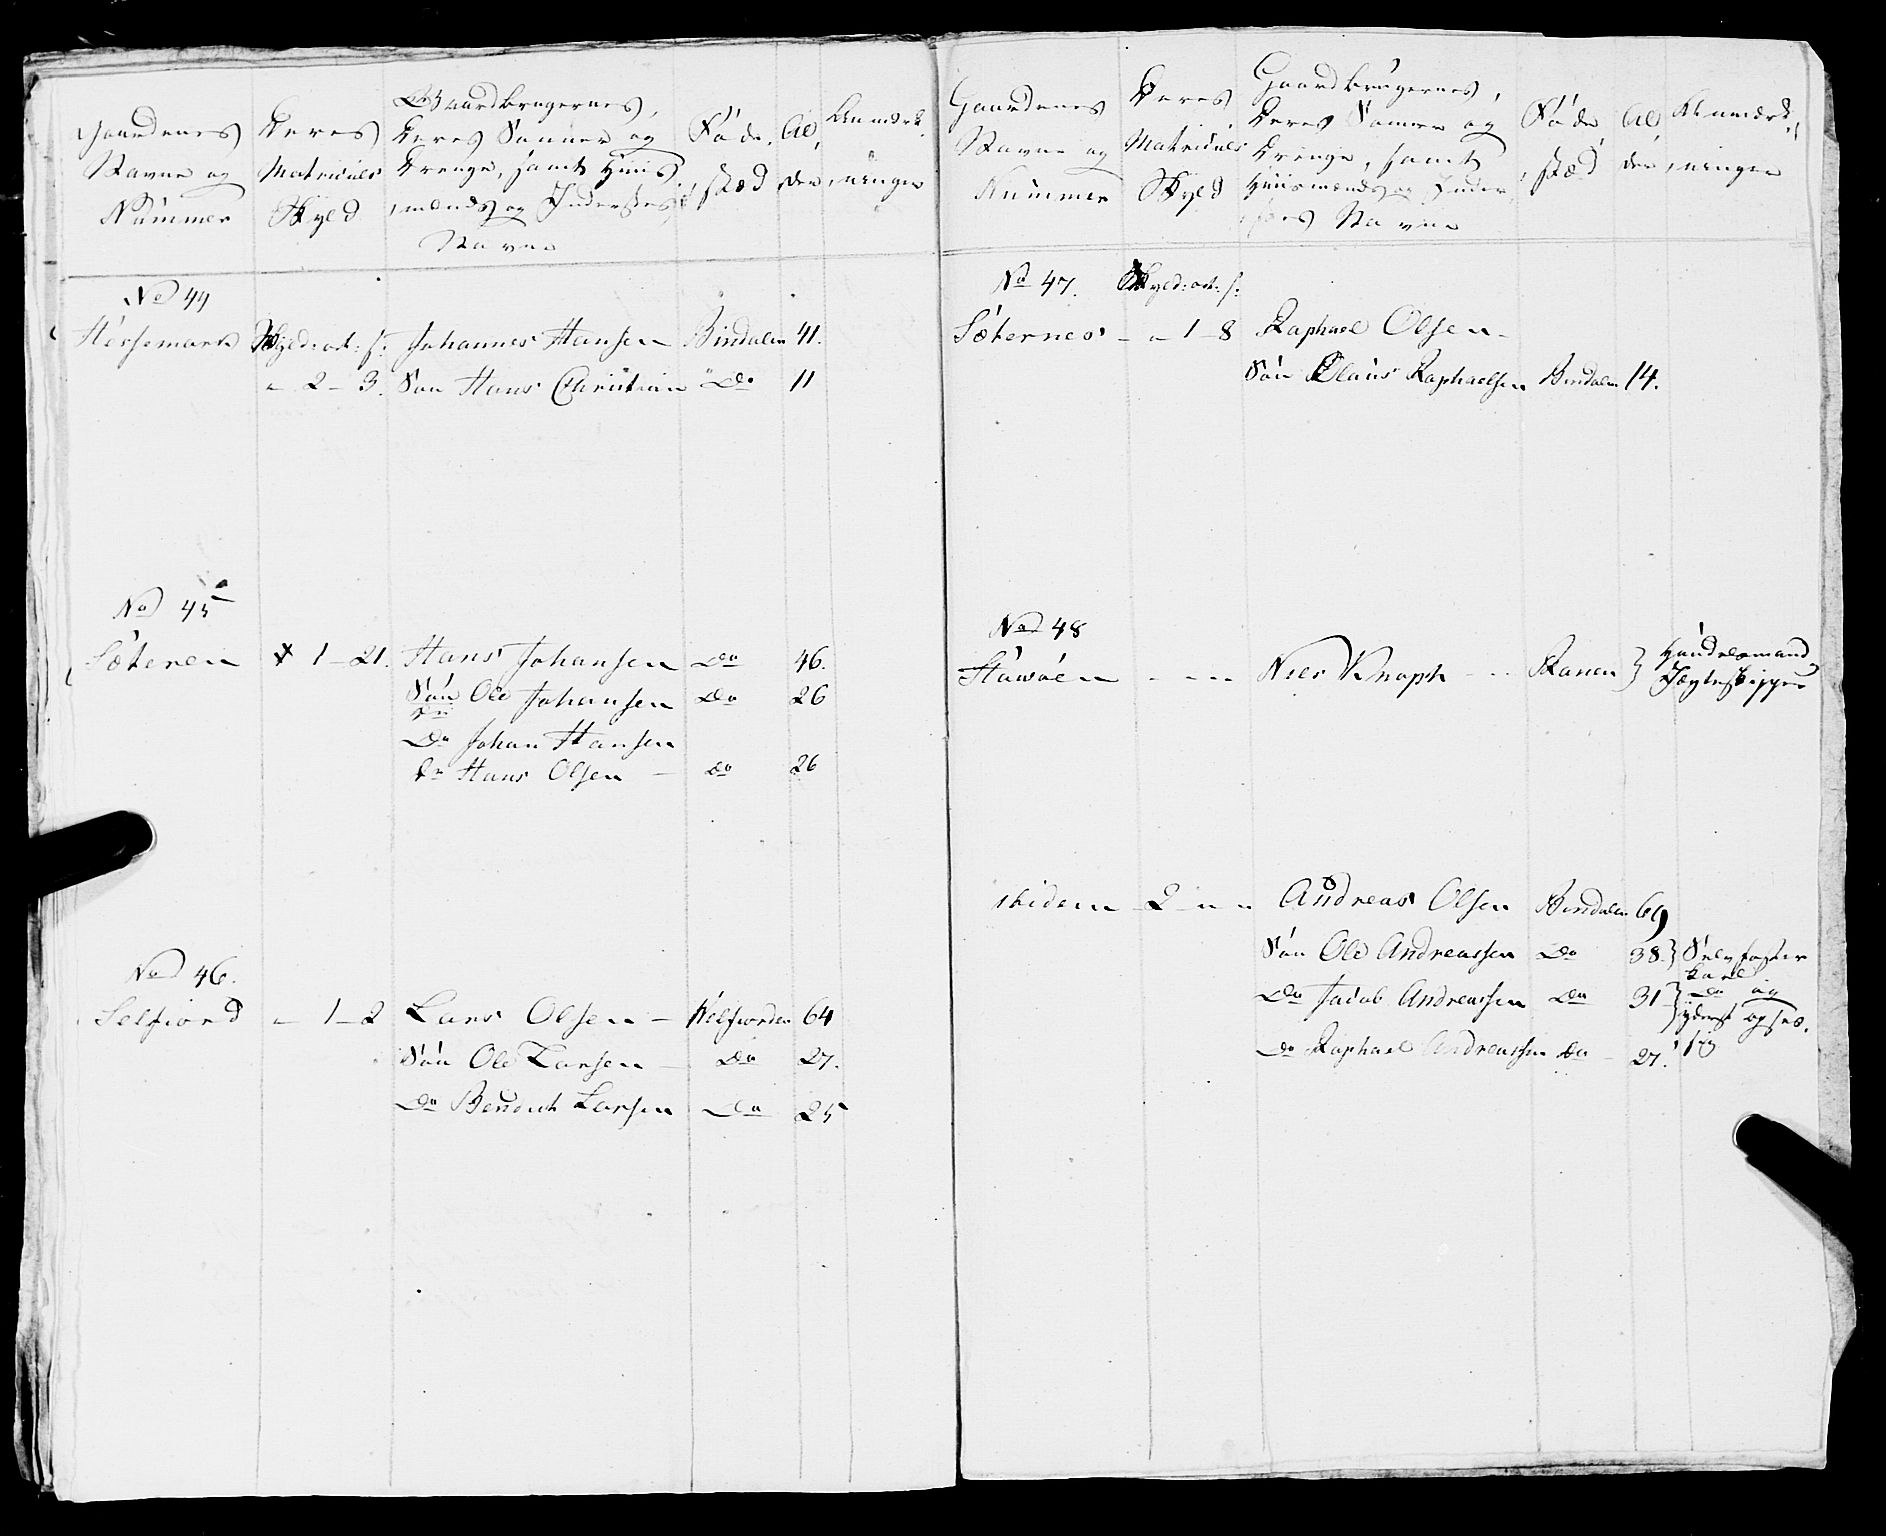 Gaardenes
Navne og
Nummer
Deres
Matriculs
Skyld
Gaardbrugernes,
Deres Sønner og
Drenge, samt Huus
mænds og Inderstes
Navne
Føde,
stæd
Al,
der
Anmærk,
ninger
No 44
Horsemark Skyld: ort: s: Johannes Hansen Bindalen 41.
" 2 - 3. Søn Hans Christian Do 11
No 45
Sæteren 1 - 21. Hans Johansen Do 46.
Søn Ole Johansen Do 26
Do Johan Hansen
Do Hans Olsen - Do 26
No 46.
Selfiord - 1 - 2 Lars Olsen - Velfiorden 64
Søn Ole Larsen - Do 27.
Do Bendict Larsen Do 25
Gaardenes
Navne og
Nummer
Deres
Matriculs
Skyld
Gaardbrugernes,
Deres Sønner og
Drenge, samt
Huusmænds og Inder,
stes Navne
Føde,
stæd
Al,
der
Anmærk,
ninger
No 47. Skyld: ort: s:
Sæternes - " 1 - 8 Raphael Olsen -
Søn Olaus Raphaelsen Bindalen 14.
No 48
Niels Knaph - Ranen } Handelsmand
Jægteskipper
ibidem - 2 - " " Andreas Olsen Bindalen 69
Søn Ole Andreassen Do 38. }
Karl
Do Jacob Andreassen Do 31 } Do og
Do Raphael Andreassen Do - 27.